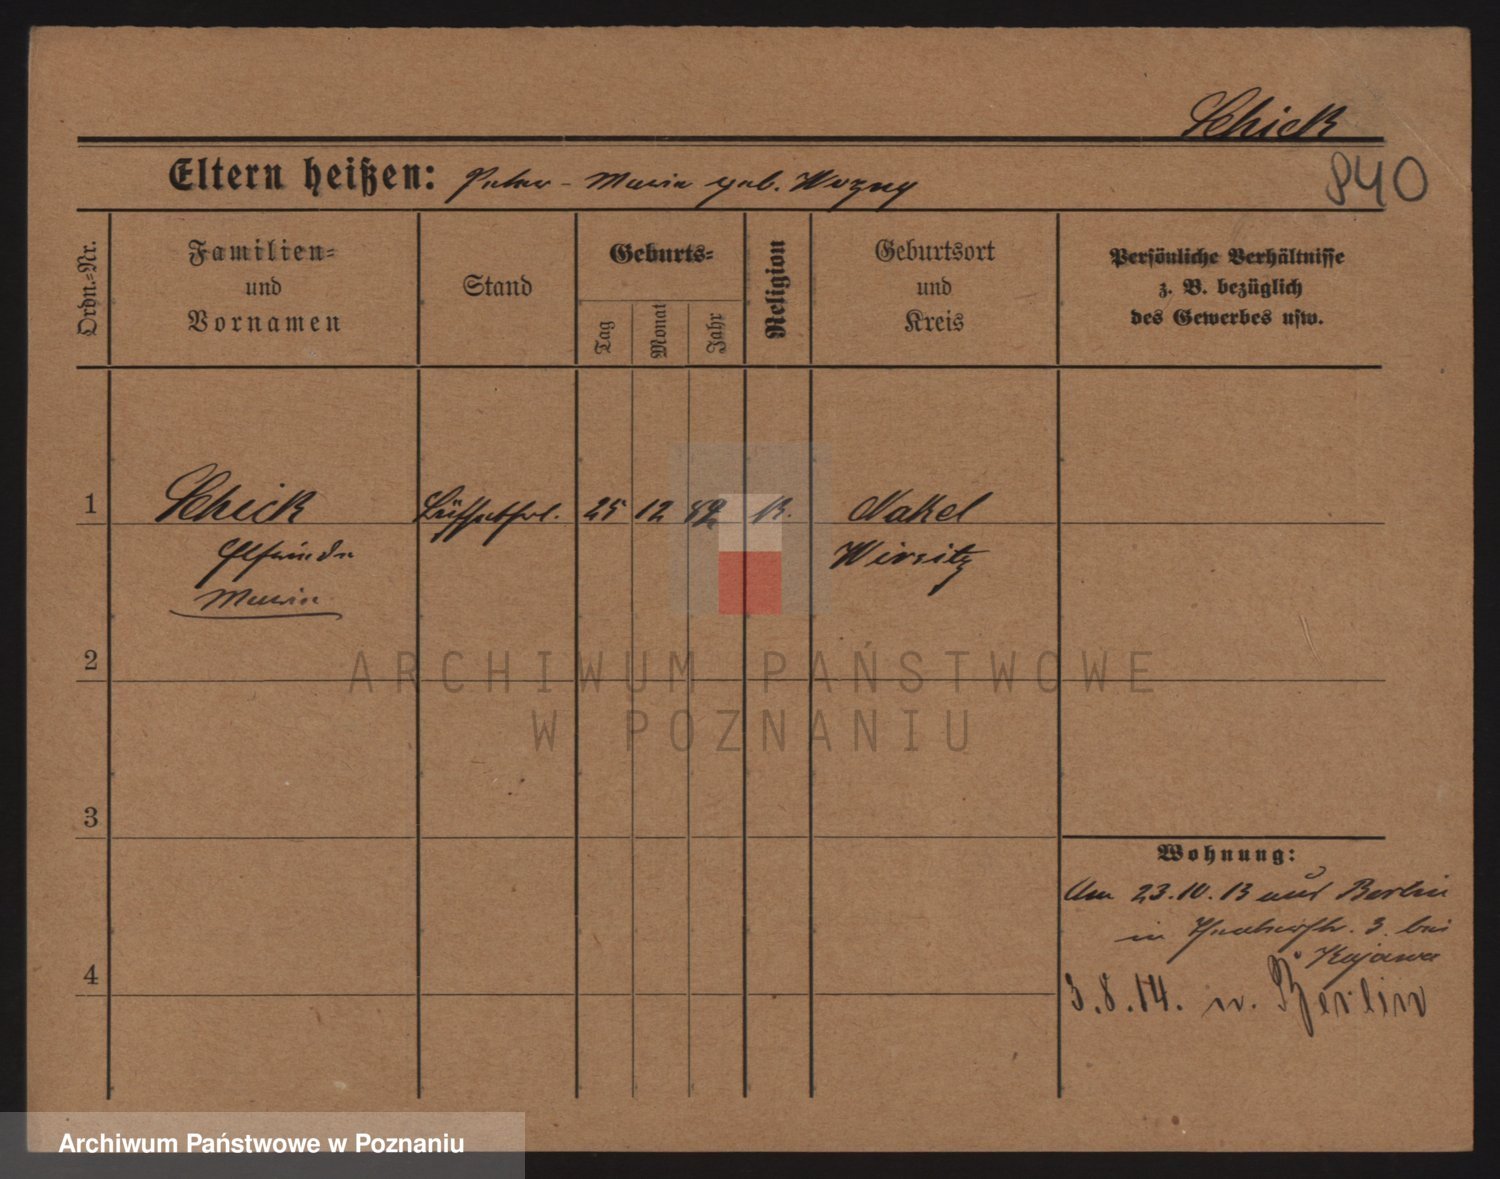 Schick
Eltern heißen: Peter - Maria geb. Wozny
840
Ordn.-Nr.
Familien-
und
Vornamen
Stand
Geburts-
Tag
Monat
Jahr
Religion
Geburtsort
und
Kreis
Persönliche Verhältnisse
z. B. bezüglich
des Gewerbes usw.
1
Schick
Elfriede
Maria
25
12
K.
Nakel
Wirsitz
2
3
4
Wohnung:
Am 23.10.13 aus Berlin
in 3. bei
Kajawa
3.8.14. n. Berlin
ARCHIWUM PAŃSTWOWE
W POZNANIU
Archiwum Państwowe w Poznaniu